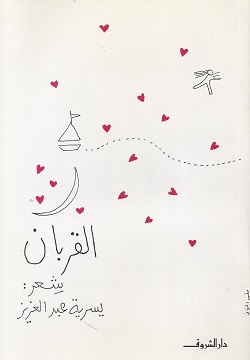 القربان
شعر:
يسرية عبد العزيز
دار الشروق